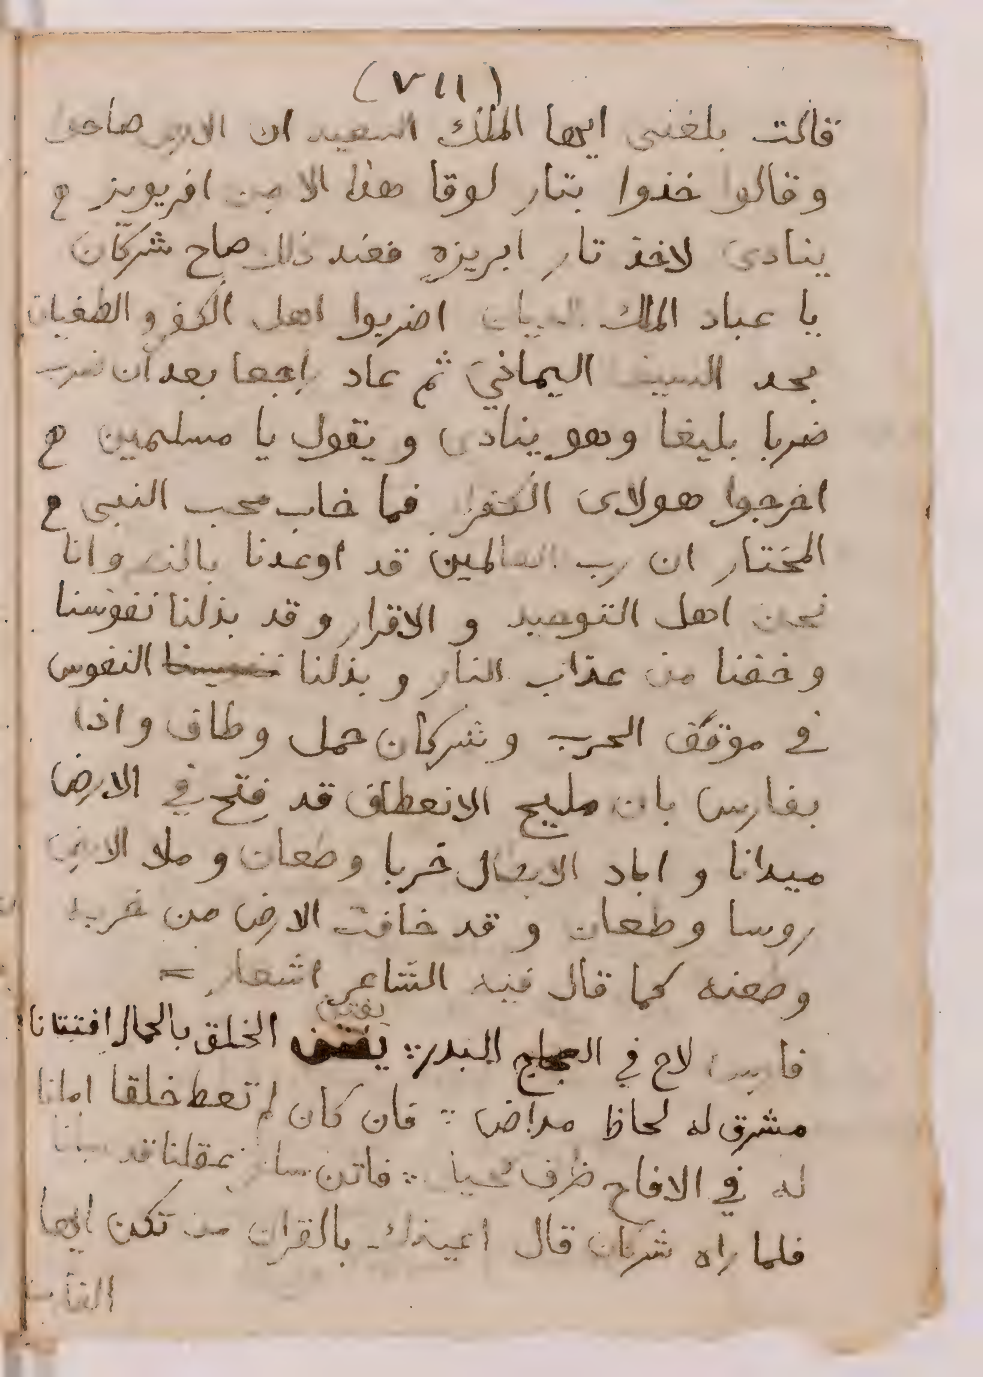 (٧١١)
قالت بلغنى ايها الملك السعيد ان صاحوا
وقالوا خذوا بتار لوقا هذا افريويز م
ينادى لاخذ تار ابريزه فعند ذلك صاح شركان
يا عباد الملك الديان اضربوا اهل الكفر و الطغيان
بحد السيف اليماني ثم عاد راجعا بعد ان ضرب
ضربا بليغا وهو ينادى و يقول يا مسلمين م
اخرجوا هولاى الكفرا فما خاب محب النبى م
المختار ان رب العالمين قد اوعدنا وانا
نحن اهل التوحيد و الاقرار و قد بذلنا نفوسنا
و خفنا من عذاب النار و بذلنا النفوس
في موقف الحرب و شركان حمل وطاف واذا
بفارس بان مليح الانعطاف قد فتح في الارض
ميدانا و اباد الابطال ضربا وطعان و ملا الارض
روسا وطعان و قد خافت الارض من ضربه
وطعنه كما قال فيه الشاعر اشعار =
فارس لاح في العجاج البدر∴ يفتن الخلق بالجمال افتتانا
مشرق له لحاظ مراض ∴ فان كان لم تعط خلقا امانا
له في الافاح ظرف ∴ فاتن بمقلنا قد
فلما راه شركان قال اعيذك بالقران من تكن ايها
الفارس